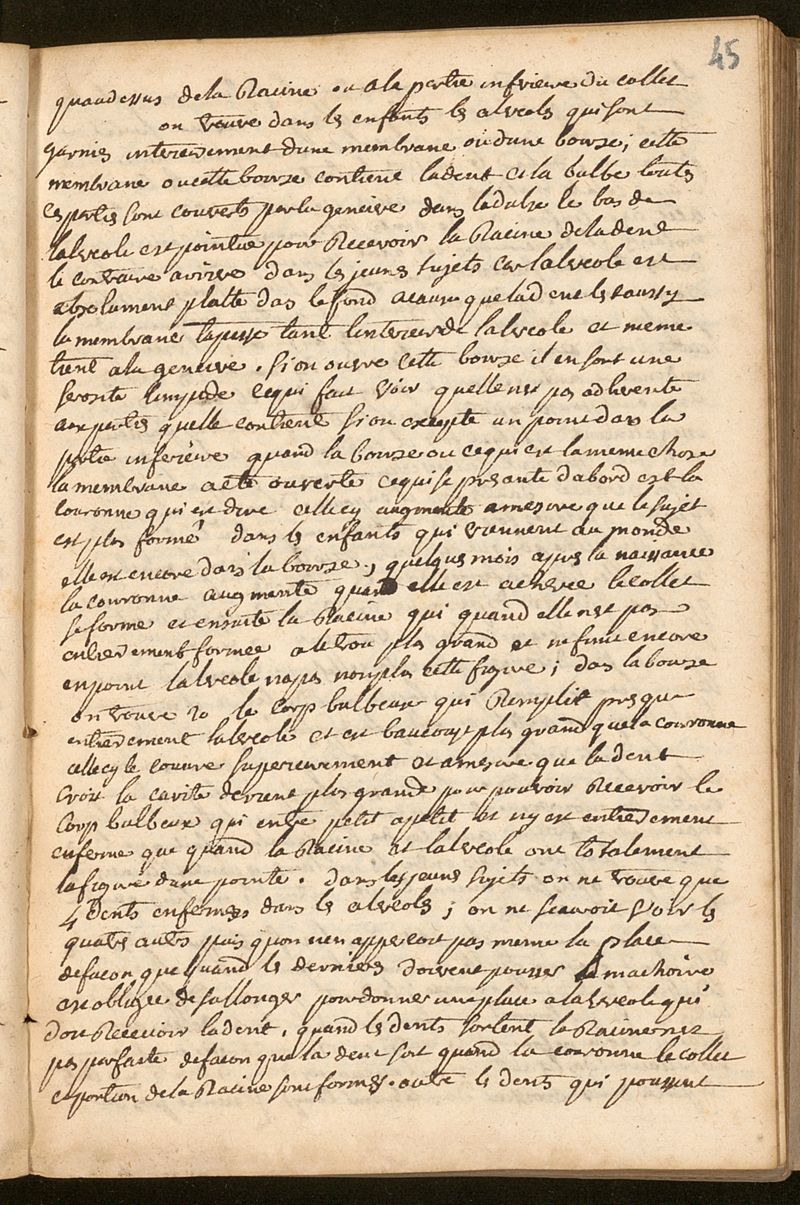 45
quaudessus de la Racine ou a la partie inferieure du collet
on trouve dans les enfants les alveols qui sont
garnies interieurement dune membrane ou dune bourse ; cette
membrane ou cette bourse contient la dent et la bulbe toutes
ces parties sont couverts par la gencive dans ladulte le bas de
lalveole est pointue pour Recevoir la Racine de la dent
le contraire arrive dans les jeunes sujets car lalveole est
absolument platte dans le fond a cause que la dent lest aussy
la membrane tapisse tant linterieur de lalveole et meme
tient a la gencive . si on ouvre cette bourse il en sort une
serosite limpide cequi fait voir quelle nest pas adherente
aux parties quelle contient si on excepte un point dans la
partie inferieure quand la bourse ou cequi est la meme chose
la membrane a ete ouverte cequi se presante dabord est la
couronne qui est dure celle cy augmente a mesure que le sujet
est plus formé dans les enfants qui viennent au monde
elle est encore dans la bourse , quelques mois apres la naissance
la couronne augmente quand elle est achevee le collet
se forme et ensuite la Racine qui quand elle nest pas
entierement formee a le trou plus grand et ne finit encore
en point lalveole na pas non plus cette figure ; dans la bourse
on trouve 2o le corp bulbeux qui Remplit presque
entierement lalveole et est baucoup plus grand que la couronne
celle cy le couvre superieurement et a mesure que la dent
croit la cavite devient plus grande pour pouvoir Recevoir le
corp bulbeux qui entre petit a petit et ny est entierement
enferme que quand la Racine et lalveole ont totalement
la figure dune pointe . dans les jeunes sujets on ne trouve que
4 dents enfermes dans les alveols ; on ne scauroit voir les
quatres autres puis quon nen appercoit pas meme la place
de facon que quand les derniers doivent pousser la machoire
est obligee de sallonger pour donner une place a lalveole qui
doit Recevoir la dent , quand les dents sortent la Racine nest
pas parfaite de facon que la dent sort quand la couronne le collet
et portion de la Racine sont formés . outre les dents qui poussent